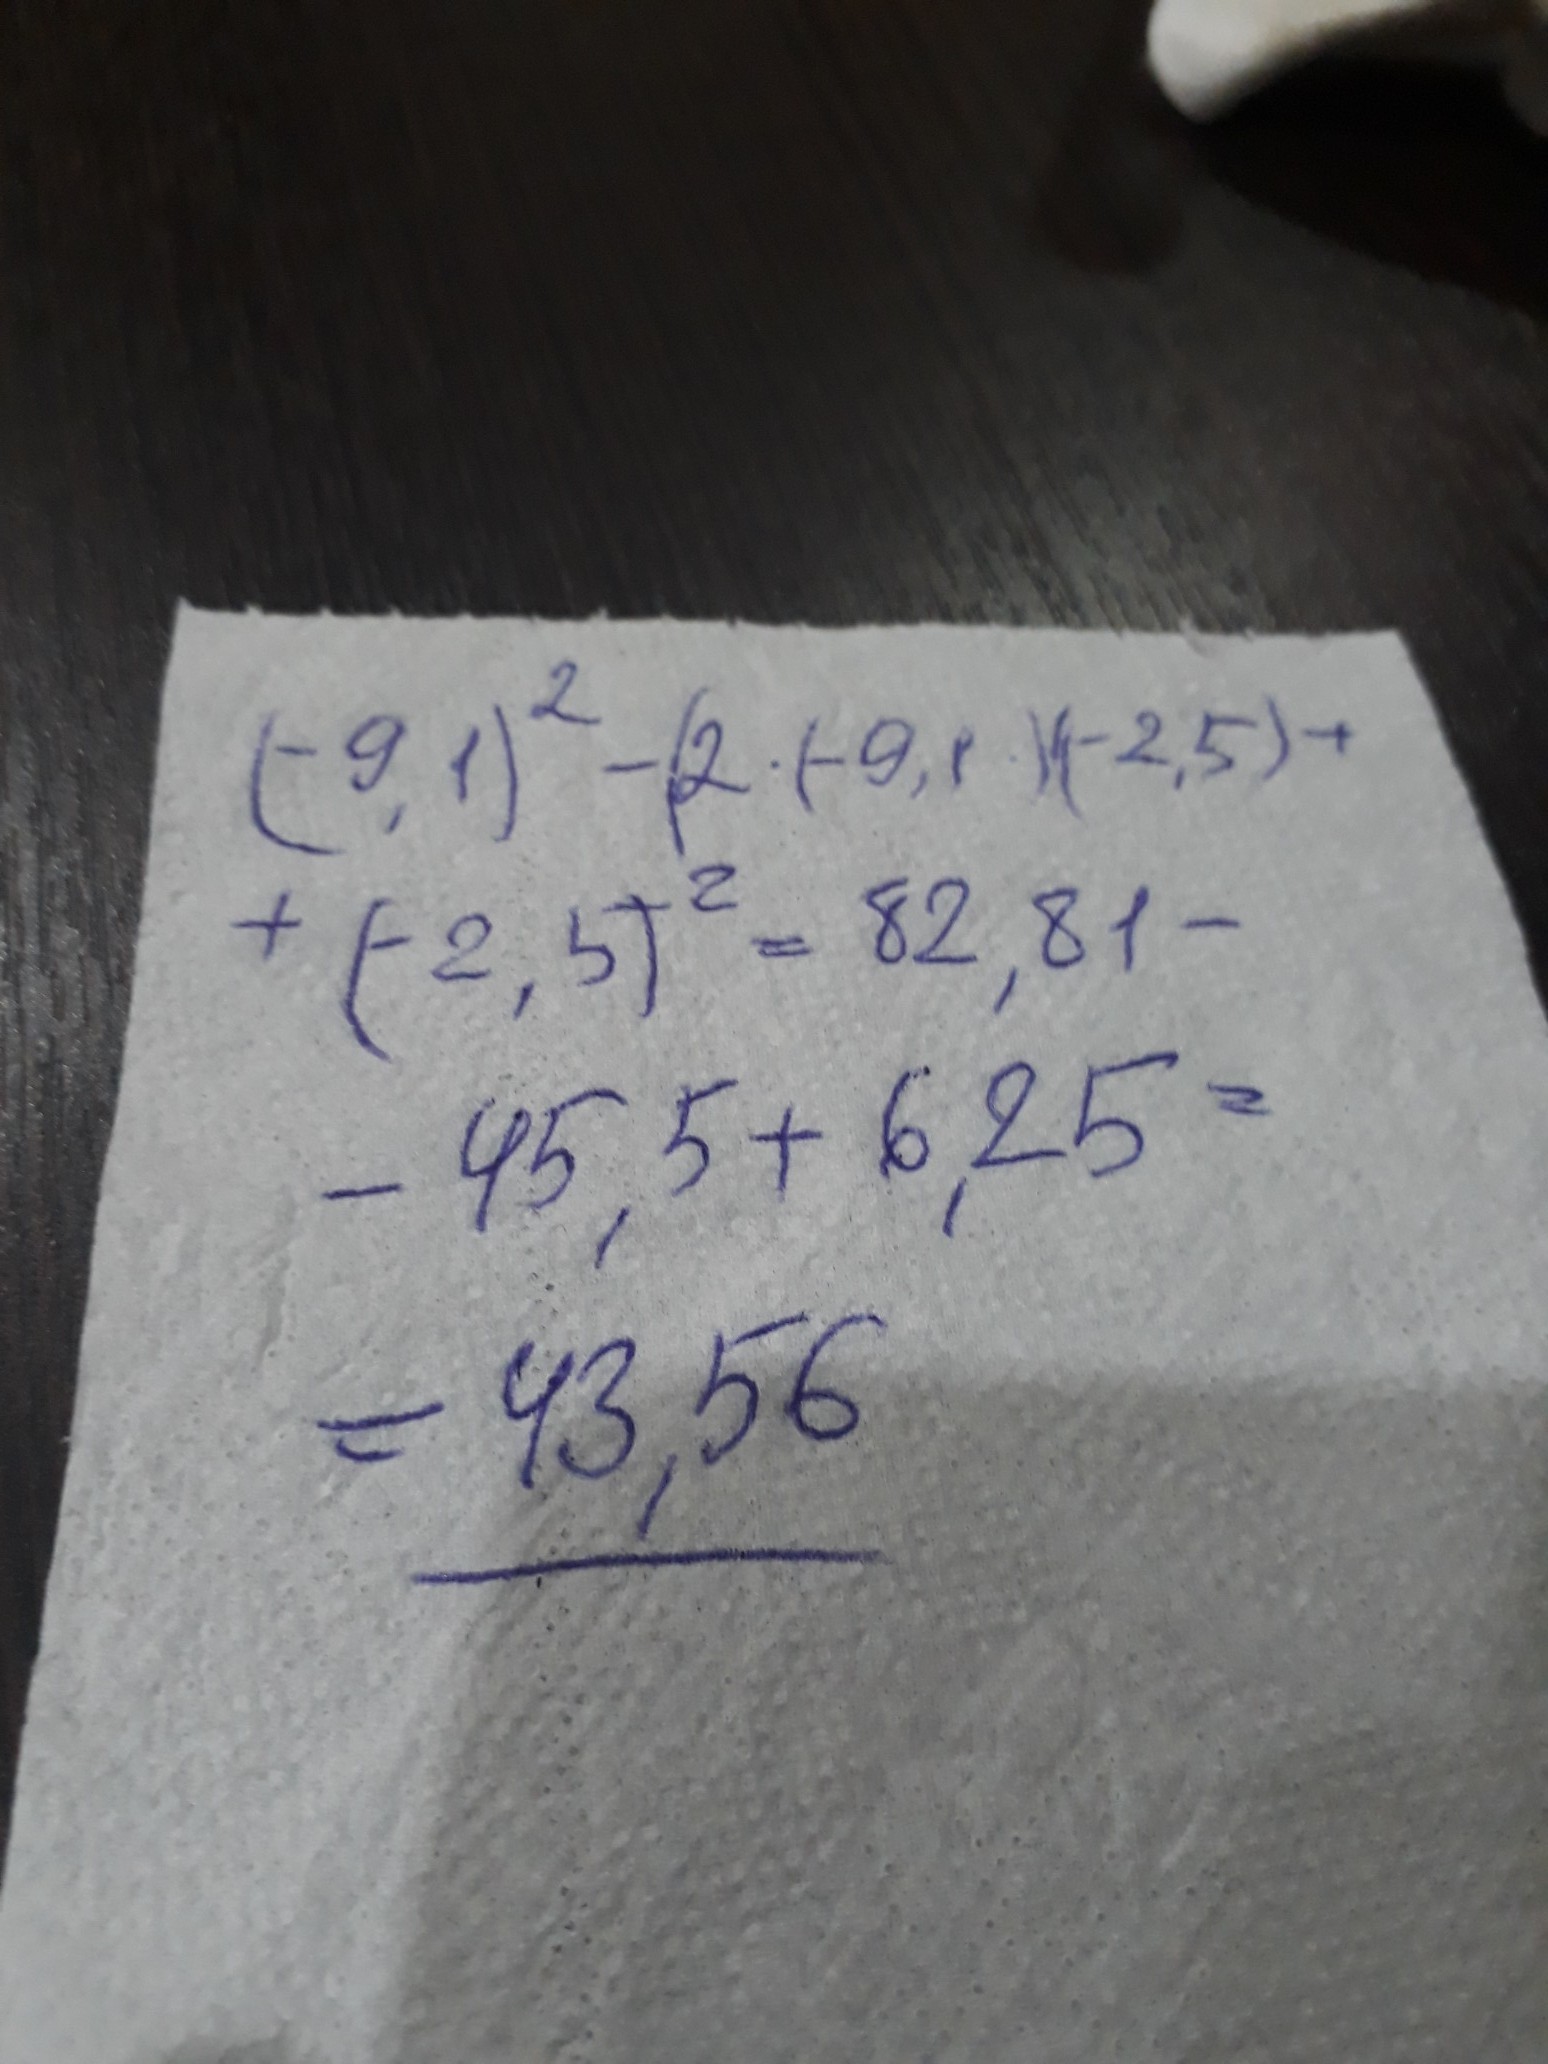 (-9,1)² - (2 · (-9,1 ·)(-2,5) +
+ (-2,5)² = 82,81 -
- 45,5 + 6,25 =
= 43,56